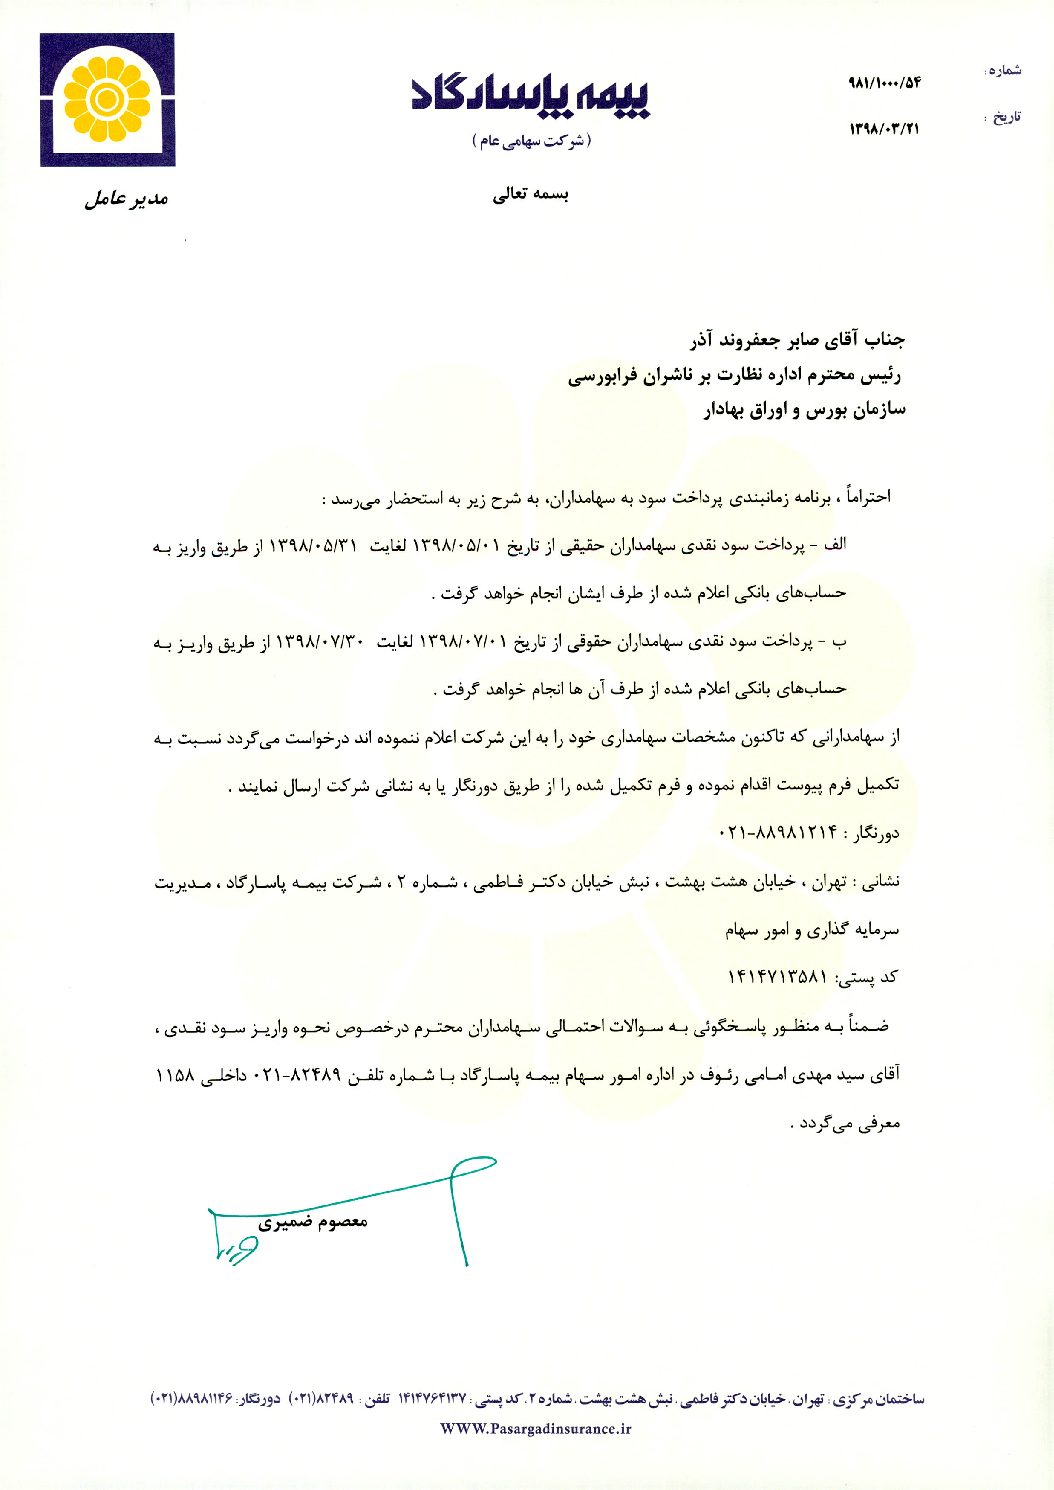 شماره :
۹۸۱/۱۰۰۰/۵۴
تاریخ :
۱۳۹۸/۰۳/۲۱
بیمه پاسارگاد
( شرکت سهامی عام )
بسمه تعالی
مدیر عامل
جناب آقای صابر جعفروند آذر
رئیس محترم اداره نظارت بر ناشران فرابورسی
سازمان بورس و اوراق بهادار
احتراماً ، برنامه زمانبندی پرداخت سود به سهامداران، به شرح زیر به استحضار می‌رسد :
الف - پرداخت سود نقدی سهامداران حقیقی از تاریخ ۱۳۹۸/۰۵/۰۱ لغایت ۱۳۹۸/۰۵/۳۱ از طریق واریز به
حساب‌های بانکی اعلام شده از طرف ایشان انجام خواهد گرفت .
ب - پرداخت سود نقدی سهامداران حقوقی از تاریخ ۱۳۹۸/۰۷/۰۱ لغایت ۱۳۹۸/۰۷/۳۰ از طریق واریز به
حساب‌های بانکی اعلام شده از طرف آن ها انجام خواهد گرفت .
از سهامدارانی که تاکنون مشخصات سهامداری خود را به این شرکت اعلام ننموده اند درخواست می‌گردد نسبت به
تکمیل فرم پیوست اقدام نموده و فرم تکمیل شده را از طریق دورنگار یا به نشانی شرکت ارسال نمایند .
دورنگار : ۸۸۹۸۱۲۱۴-۰۲۱
نشانی : تهران ، خیابان هشت بهشت ، نبش خیابان دکتر فاطمی ، شماره ۲ ، شرکت بیمه پاسارگاد ، مدیریت
سرمایه گذاری و امور سهام
کد پستی: ۱۴۱۴۷۱۳۵۸۱
ضمناً به منظور پاسخگوئی به سوالات احتمالی سهامداران محترم درخصوص نحوه واریز سود نقدی ،
آقای سید مهدی امامی رئوف در اداره امور سهام بیمه پاسارگاد با شماره تلفن ۸۲۴۸۹-۰۲۱ داخلی ۱۱۵۸
معرفی می‌گردد .
معصوم ضمیری
ساختمان مرکزی : تهران . خیابان دکتر فاطمی . نبش هشت بهشت . شماره ۲ . کد پستی : ۱۴۱۴۷۶۴۱۳۷ تلفن : ۸۲۴۸۹(۰۲۱) دورنگار: ۸۸۹۸۱۱۴۶(۰۲۱)
WWW.Pasargadinsurance.ir